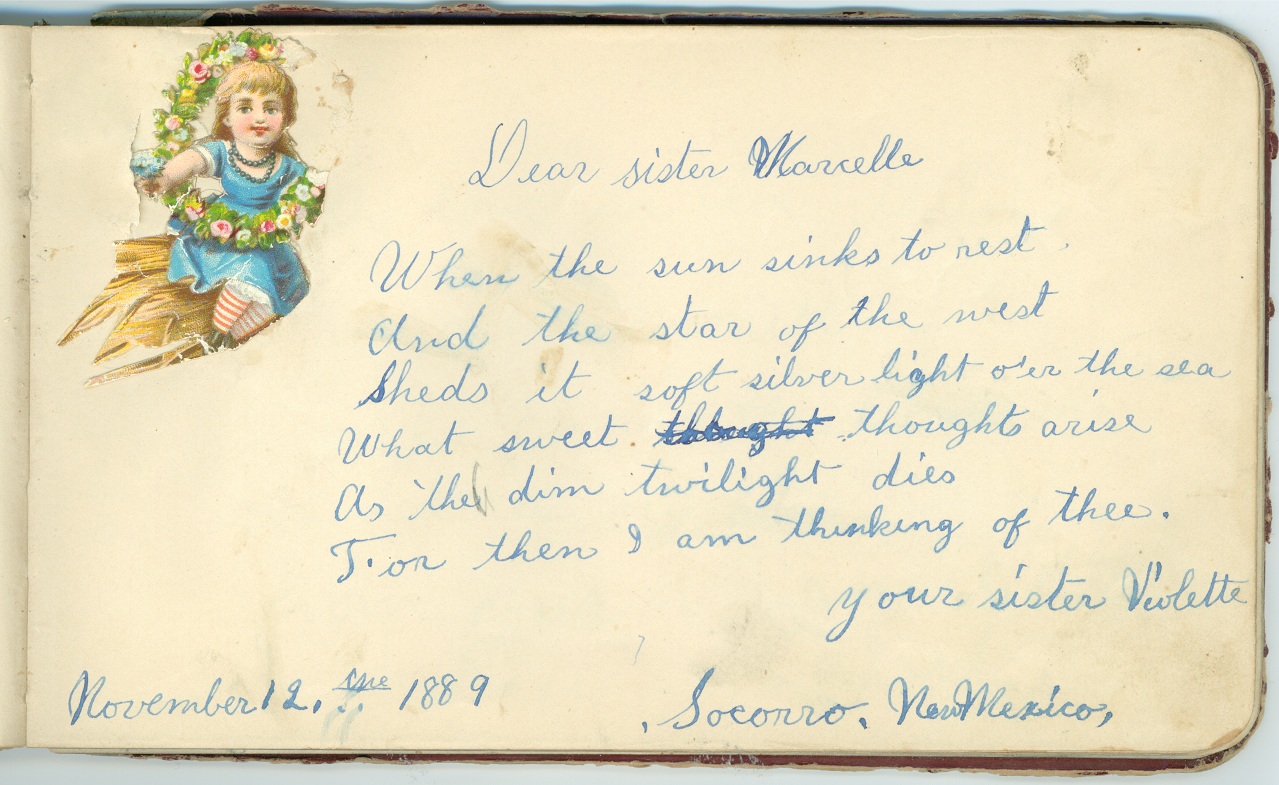 Dear sister Marcelle
When the sun sinks to rest.
And the star of the west
Sheds it soft silver light o'er the sea
What sweet thought thoughts arise
As the dim twilight dies
For then I am thinking of thee.
your sister Violette
November 12. me 1889
Socorro. New Mexico,